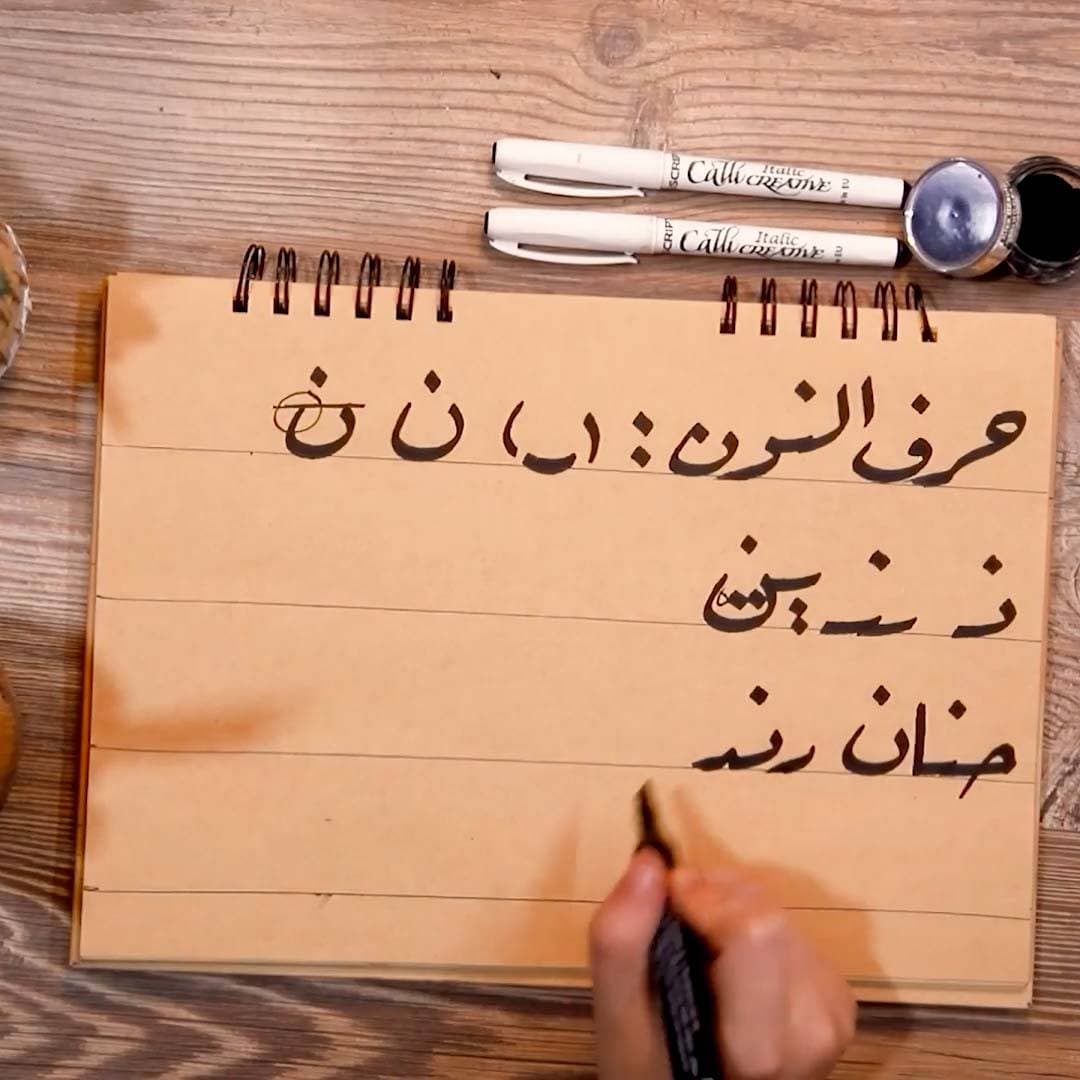 SCRIPT Calli Italic CREATIVE
SCRIPT Calli Italic CREATIVE
حرف النون : ( ں ) ن ن
نـ ـنـ ـين
حنان رند